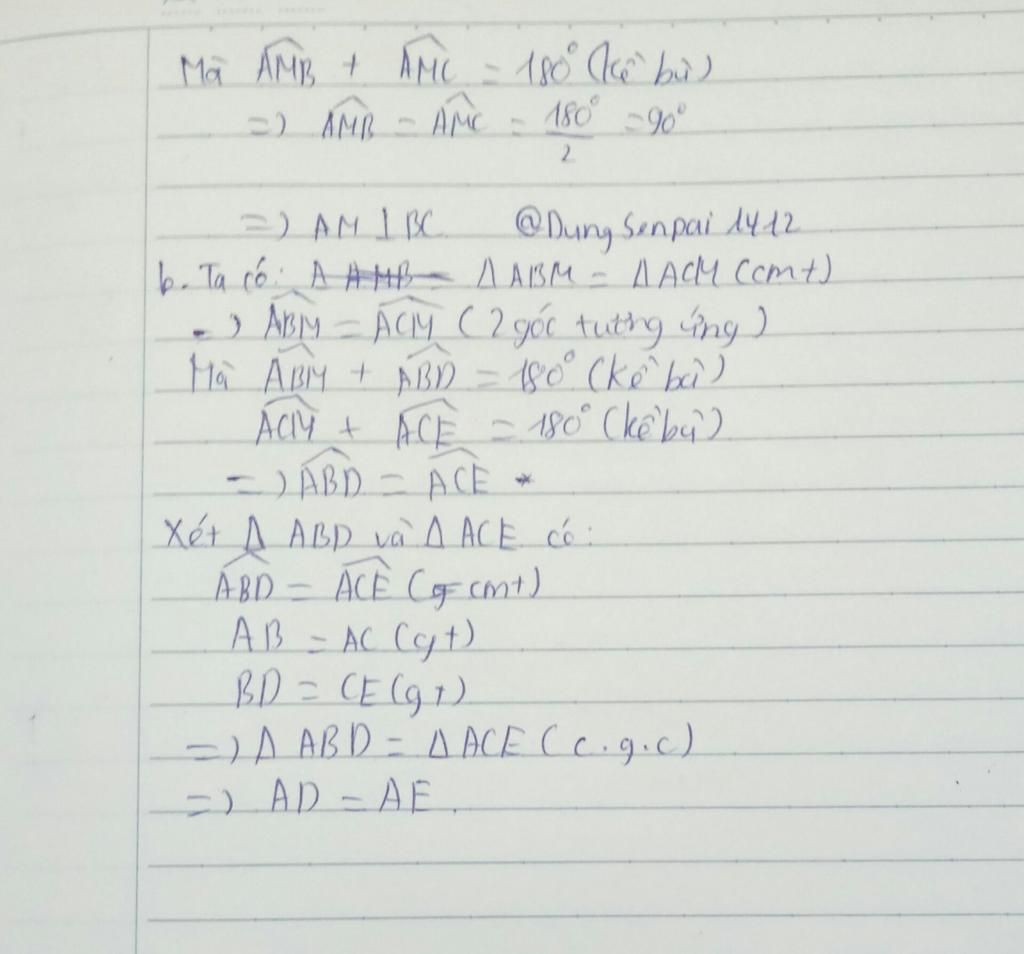 Mà AMB + AMC = 180° (kề bù)
=) AMB = AMC = 180°/2 = 90°
=) AM ⊥ BC @Dung Senpai 1412
b. Ta có: Δ ABM = Δ ACM (cmt)
=) ABM = ACM (2 góc tương ứng)
Mà ABM + ABD = 180° (kề bù)
ACM + ACE = 180° (kề bù)
=) ABD = ACE *
Xét Δ ABD và Δ ACE có:
ABD = ACE (cmt)
AB = AC (gt)
BD = CE (gt)
=) Δ ABD = Δ ACE (c.g.c)
=) AD = AE.